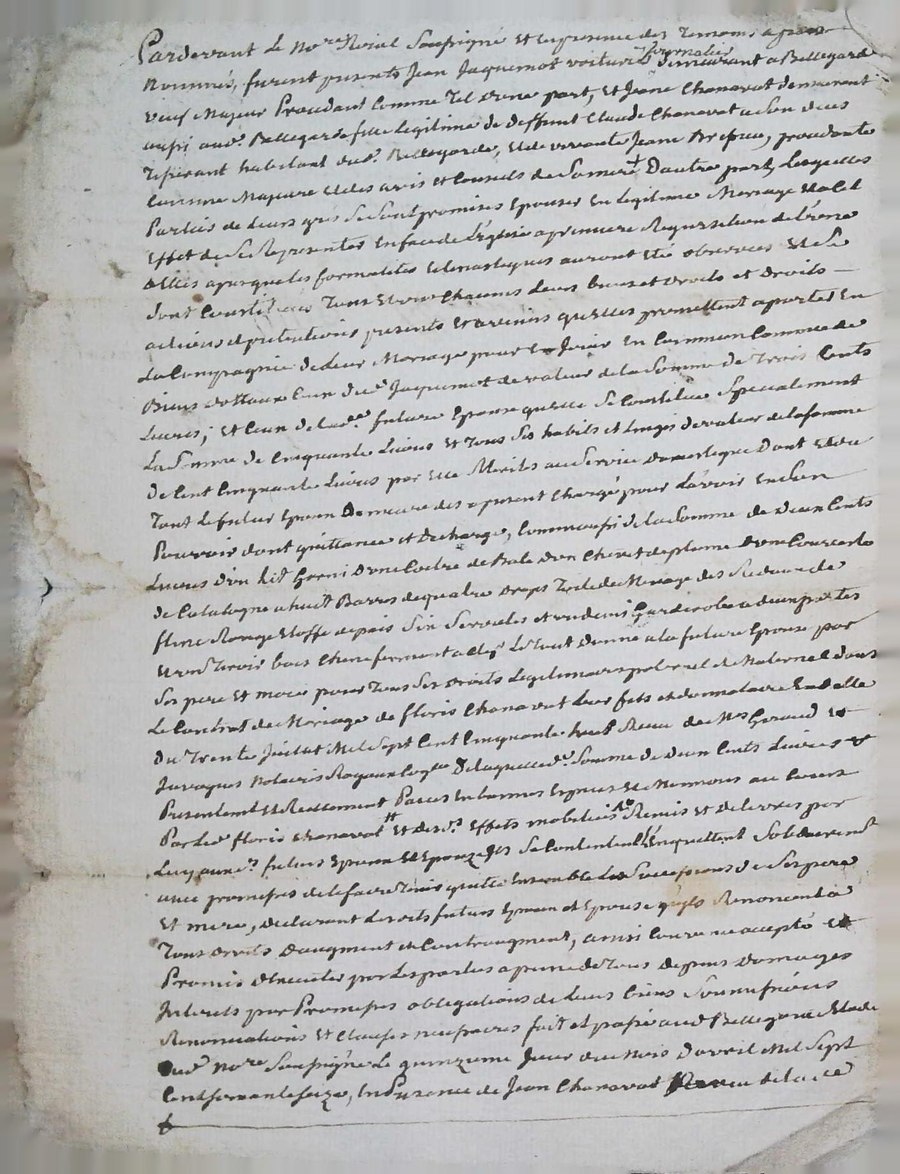 Pardevant Le No.re Roial Soussigné Et en presence des Temoins apres
journalier
Nommés, furent presents Jean Jaquemot voiturié demeurant a Bellegarde
veuf Majeur Procedant Comme Tel d'une part, Et Jeane Chanavat demeurant
aussi aud. Bellegarde fille Legitime de deffunt Claude Chanavat
Tisserant habitant dud. Bellegarde, Et de vivante Jeane procedante
Comme Majeure Et des avis et Conseils de Sa mere D'autre part, Lesquelles
Parties de Leurs grés Se Sont promises Epouser En Legitime Mariage Et a Cet
Effet de Se Representer En face de L'église a premiere Requisition de L'une
d'Elles apres que les formalités auront été observées Et Se
Sont Constitués Tous Et uns Chacuns Leurs biens et droits et droits
actions et pretentions presents Et avenirs qu'elles promettent aporter En
La Compagnie de Leur Mariage pour En Jouir En Commun Comme de
Biens dottaux Ceux dud. Jaquemot de valeur de la Somme de Trois Cents
Livres, Et Ceux de Lad. future Epouse qu'elle Se Constitue Specialement
La Somme de Cinquante Livres Et Tous Ses habits et Linges de valeur de la Somme
de Cent Cinquante Livres par Elle Merités au Service domestique Dont Et du
Tout Le futur Epoux Demeure des apresent Chargé pour L'avoir En Son
Pouvoir dont quittance et decharge, Comm'aussi de la Somme de deux Cents
Livres d'un Lit Garni D'une Coëtre de Bale d'un Chevet de plume D'une Couverte
de Catalogne a huit Barres de quatre draps Toile de Menage des Rideaux de
Rouge Etoffe de pais Six Serviettes et un demi Garderobe a deux portes
Et un bois Chene fermant a Clef Le Tout donné a la future Epouse par
Ses pere Et mere pour Tous Ses droits Legitimaires paternel et Maternel dans
Le Contrat de Mariage de floris Chanavat Leur fils et donnataire En datte
du Trente Juillet Mil Sept Cent Cinquante huit Receu de Me Giraud Et
Notaires Royaux De laquelle d. Somme de deux Cents Livres
Presentement Et Reellement Payée En bonnes Especes Et Monnoies au Cours
Par Led. floris Chanavat Et desd. Effets mobiliers Remis Et delivrés par
Luy auxd. futurs Epoux Et Epouze Ils Se Contentent Et En quittent Solidairement
avec promesse de Le faire Tenir quitte Ensemble Les Successions de Ses pere
Et mere, declarant Lesdits futurs Epoux et Epouse qu'ils Renoncent a
Tous droits D'augment et Contraugment, ainsi Convenu accepté Et
Promis D'Executer par Les parties a peine de Tous depens Domages
Interets par Promesses obligations de Leurs biens Soumissions
Renonciations Et Clauses necessaires fait et passé aud. Bellegarde Etude
dud. No.re Soussigné Le quinzieme Jour du Mois D'avril Mil Sept
Cent Soixante Seize, En Presence de Jean Chanavat